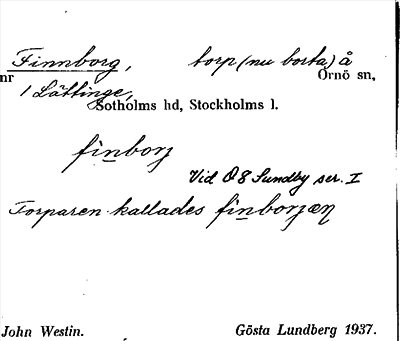 Finnborg, torp (nu borta) å
nr Ornö sn,
1 Lättinge,
Sotholms hd, Stockholms l.
finborj
Vid Ö 8 Sundby ser. I
Torparen kallades finborjæn
John Westin. Gösta Lundberg 1937.